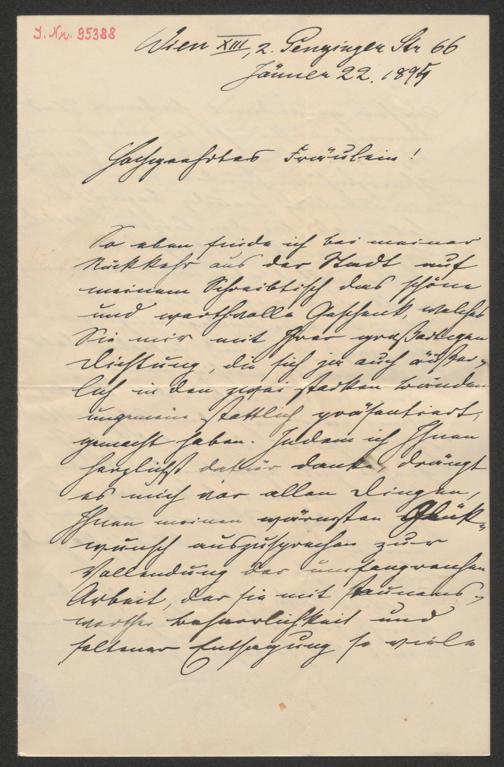 J. Nr. 95388
Wien XIII, 2. Penzinger Str 66
Jänner 22. 1894
Hochgeehrtes Fräulein!
So eben finde ich bei meiner
Rückkehr aus der Stadt auf
meinem Schreibtisch das schöne
und werthvolle Geschenk, welches
Sie mir mit Ihrer großartigen
Dichtung, die sich ja auch äußer-
lich in den zwei starken Bänden
ungemein stattlich präsentiert,
gemacht haben. Indem ich Ihnen
herzlichst dafür danke, drängt
es mich vor allen Dingen,
Ihnen meinen wärmsten Glück-
wunsch auszusprechen zur
Vollendung der umfangreichen
Arbeit, der sie mit staunens-
werther Beharrlichkeit und
seltener Entsagung so viele